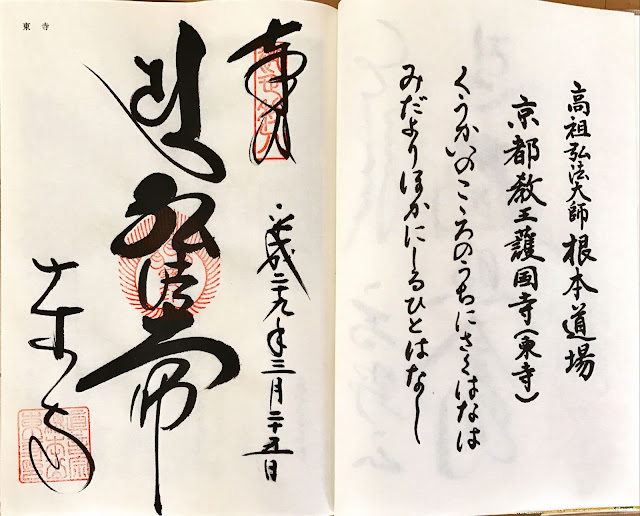 高祖弘法大師根本道場
京都教王護国寺(東寺)
くうかいのこゝろのうちにさくはなは
みだよりほかにしるひとはなし
奉拝
平成二十九年三月二十五日
弘法大師
東寺
東寺